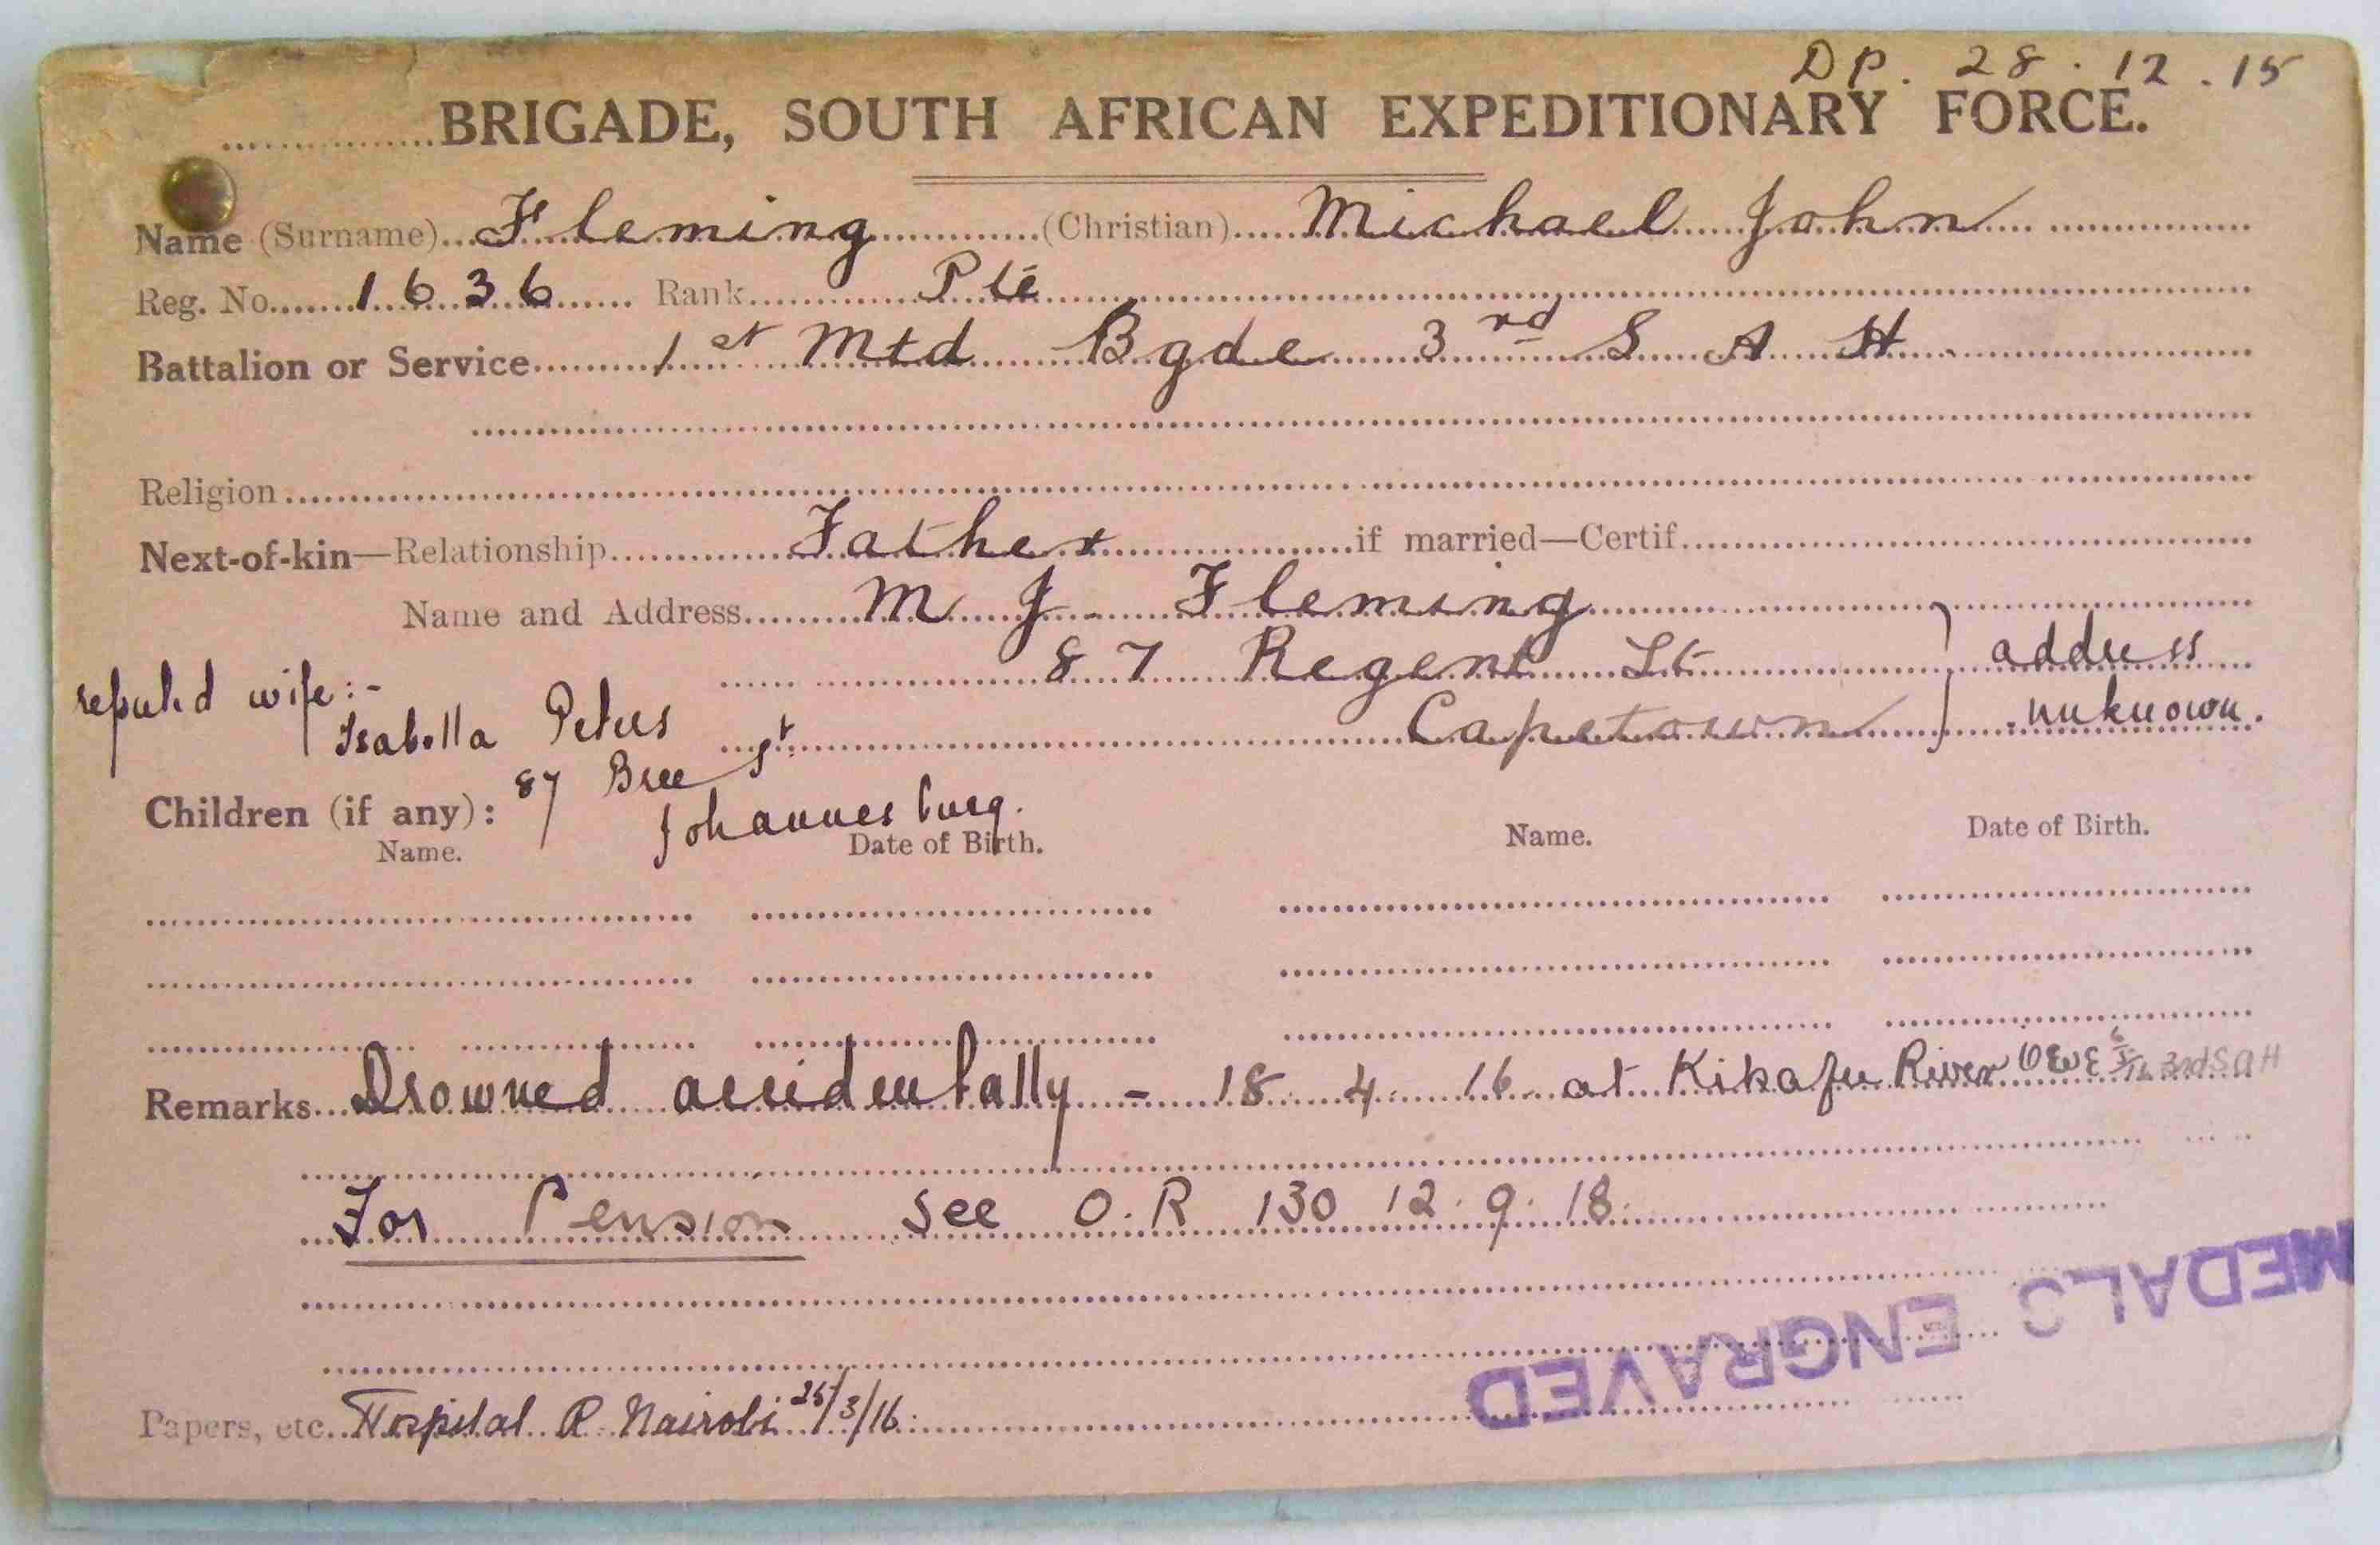 DP. 28. 12. 15
BRIGADE, SOUTH AFRICAN EXPEDITIONARY FORCE.
Name (Surname) Fleming (Christian) Michael John
Reg. No. 1636 Rank Pte
Battalion or Service 1st Mtd Bgde 3rd S A H
Religion
Next-of-kin—Relationship Father if married—Certif.
Name and Address M J Fleming
87 Regent St address
Capetown unknown.
reputed wife:-
Isabella Peters
87 Bree St.
Johannesburg.
Children (if any):
Name. Date of Birth. Name. Date of Birth.
Remarks Drowned accidentally - 18 4 16 at Kikafu River 3rd S A H
For Pension see O.R 130 12.9.18.
MEDALS ENGRAVED
Papers, etc. Hospital R. Nairobi 25/3/16.